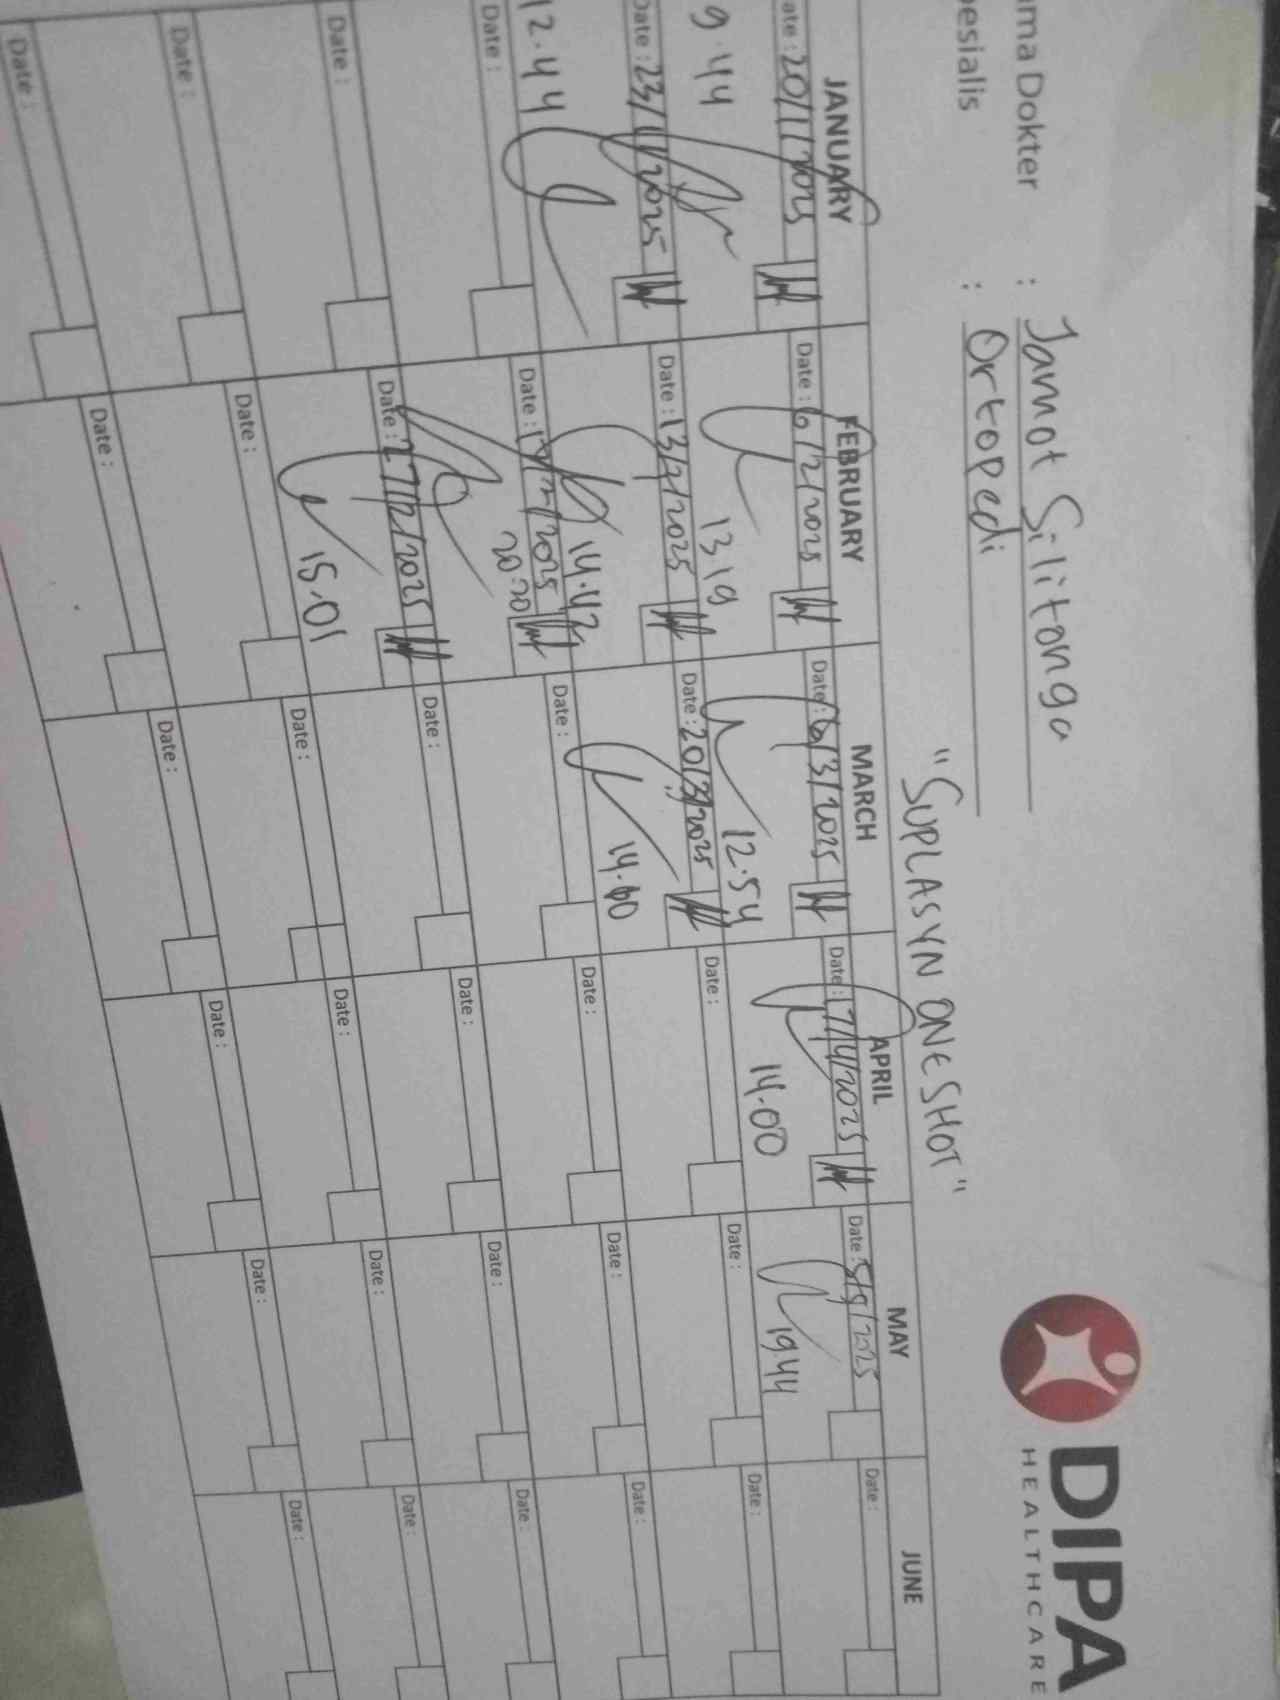 DIPA
HEALTHCARE
ma Dokter : Jamot Silitonga
esialis : Ortopedi
"SUPLASYN ONE SHOT"
JANUARY FEBRUARY MARCH APRIL MAY JUNE
ate : 20/1/2025 Date : 6/2/2025 Date : 6/3/2025 Date : 17/4/2025 Date : 5/5/2025 Date :
9.44 13 19 12.54 14.00 19 44
Date : 23/1/2025 Date : 13/2/2025 Date : 20/3/2025 Date : Date : Date :
12.44 14.42 14.00
Date : Date : /2/2025 Date : Date : Date : Date :
20.20
Date : Date : 27/2/2025 Date : Date : Date : Date :
15.01
Date : Date : Date : Date : Date : Date :
Date : Date : Date : Date : Date : Date :